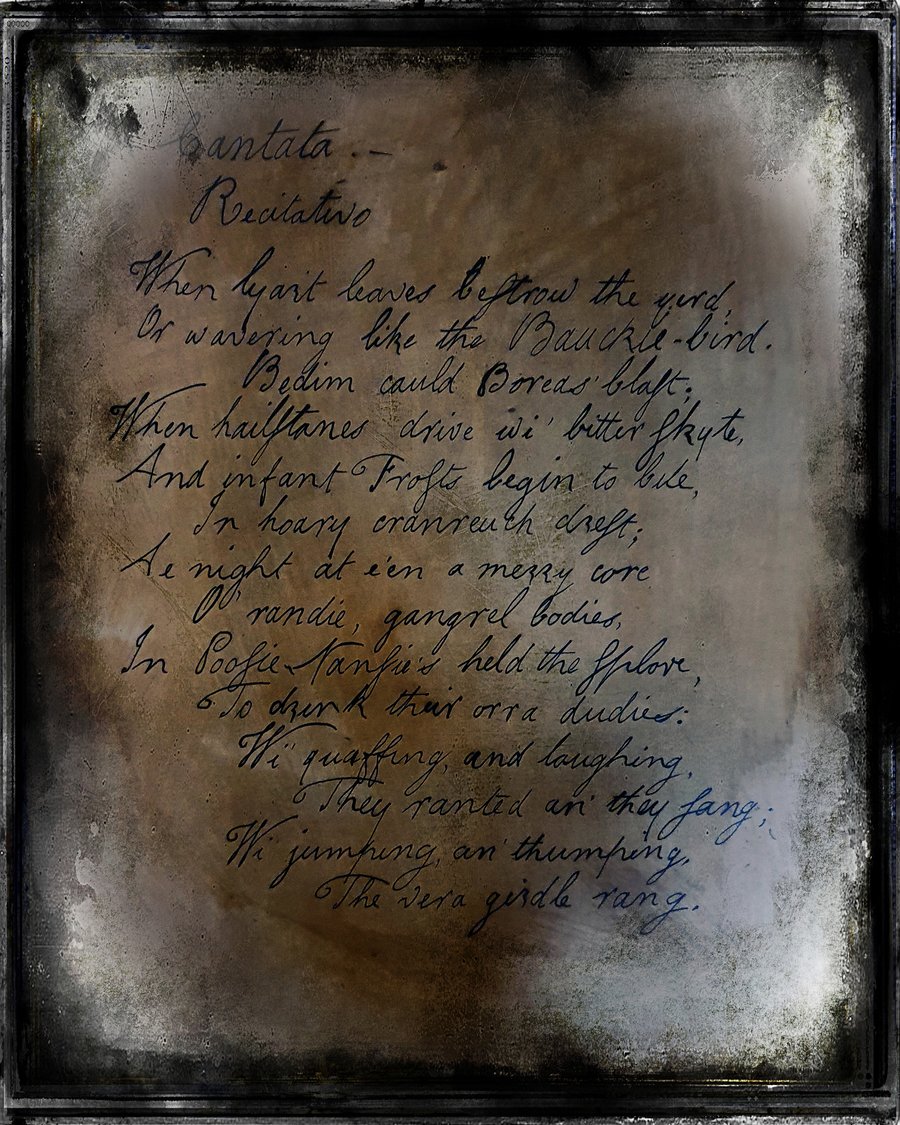 Cantata. —
Recitativo
When lyart leaves beſtrow the yird,
Or wavering like the Bauckie-bird.
Bedim cauld Boreas' blaſt;
When hailſtanes drive wi' bitter ſkyte,
And infant Froſts begin to bite,
In hoary cranreuch dreſt;
Ae night at e'en a merry core
O' randie, gangrel bodies,
In Pooſie-Nanſie's held the ſplore,
To drink their orra dudies:
Wi' quaffing, and laughing,
They ranted an' they ſang;
Wi' jumping, an' thumping,
The vera girdle rang.